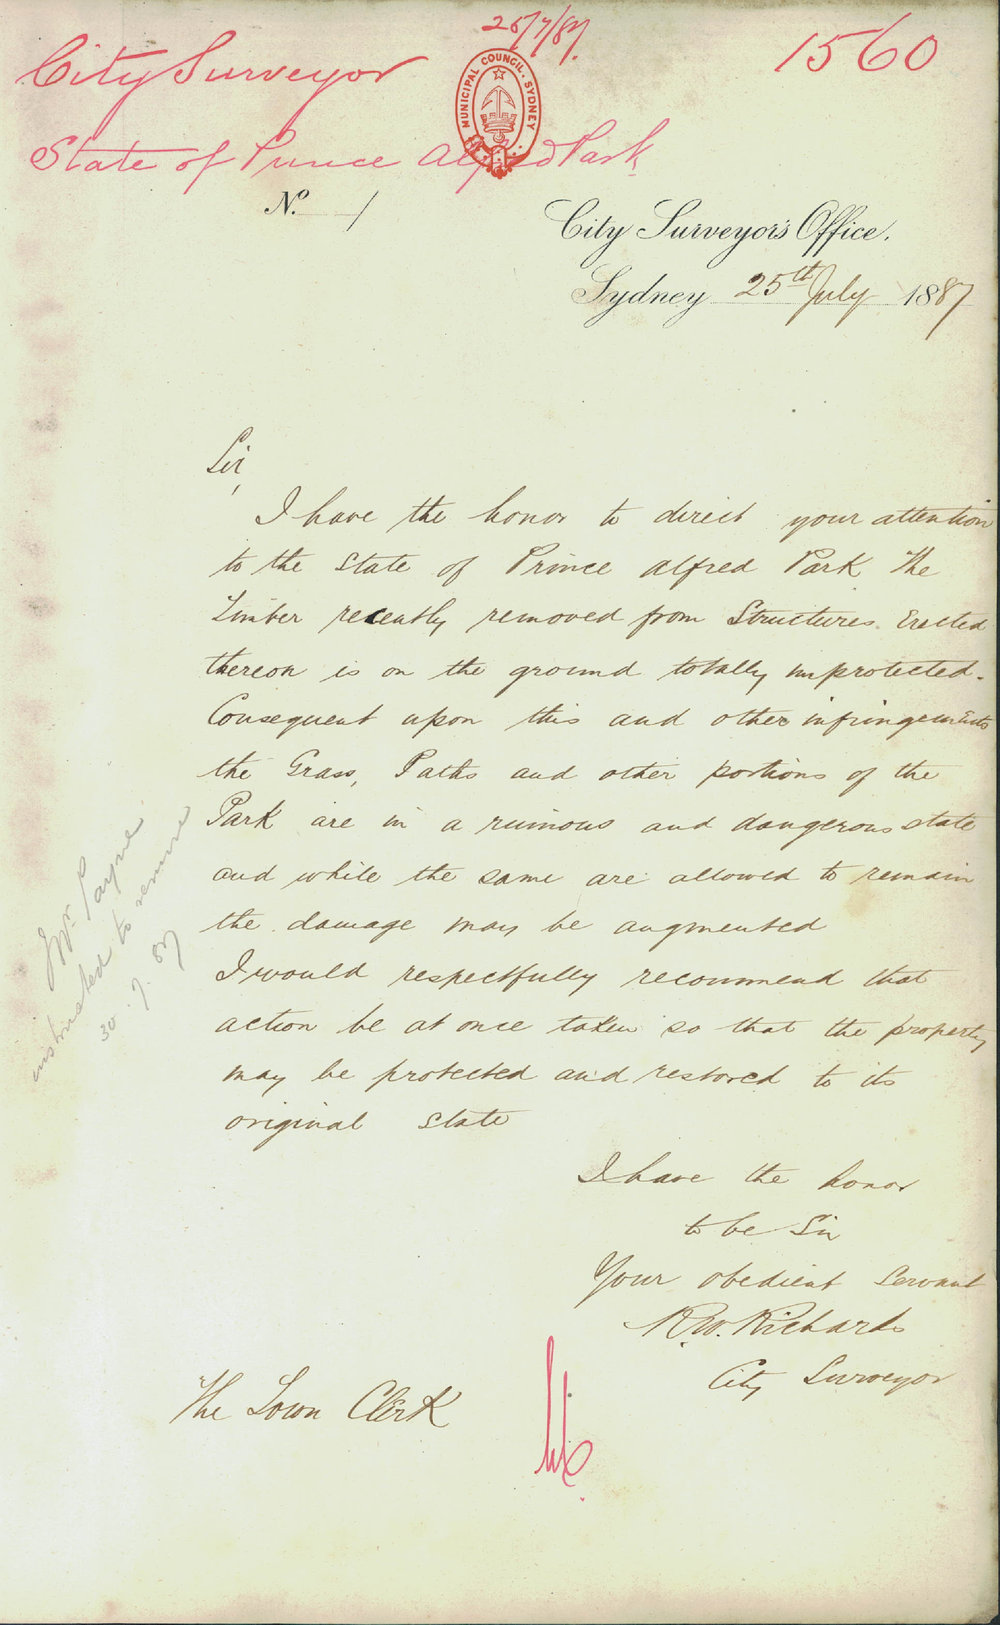 26/7/87.
1560
City Surveyor
State of Prince Alfred Park
MUNICIPAL COUNCIL. SYDNEY
No. 1
City Surveyor's Office.
Sydney 25th July 1887
Sir,
I have the honor to direct your attention
to the state of Prince Alfred Park The
Timber recently removed from Structures Erected
thereon is on the ground totally unprotected.
Consequent upon this and other infringements
the Grass, Paths and other portions of the
Park are in a ruinous and dangerous state
and while the same are allowed to remain
the damage may be augmented
I would respectfully recommend that
action be at once taken so that the property
may be protected and restored to its
original state
I have the honor
to be Sir
Your obedient Servant
R.W. Richards
City Surveyor
The Town Clerk
Mr. Payne
instructed to remove
30.7.87